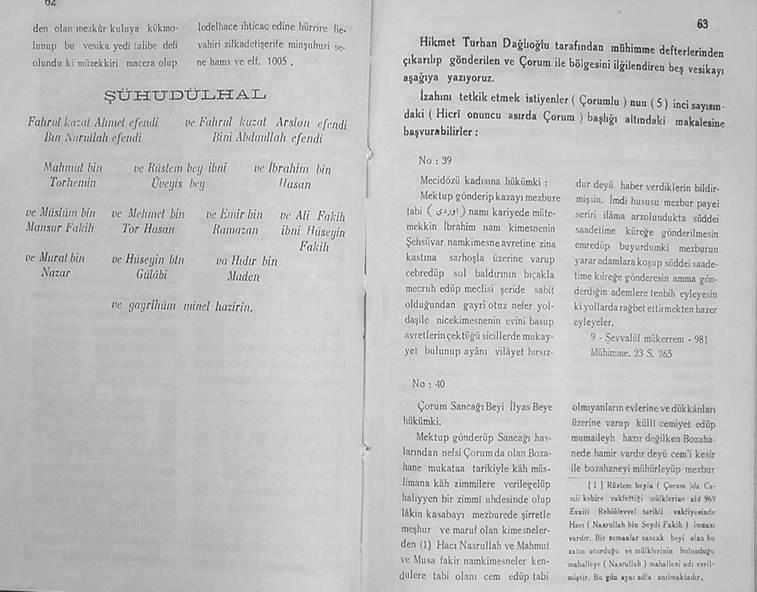 62
den olan mezkûr kuluya kükmo-
lunup bu vesika yedi talibe defi
olundu ki müzekkiri macera olup
ledelhace ihticac edine hürrire fie-
vahiri zilkadetişerife minşuhuri se-
ne hams ve elf. 1005 .
ŞÜHUDÜLHAL
Fahrul kuzat Ahmet efendi ve Fahrul kuzat Arslan efendi
Bin Nurullah efendi Bini Abdullah efendi
Mahmut bin ve Rüstem bey ibni ve İbrahim bin
Torhemin Üveyis bey Hasan
ve Müslüm bin ve Mehmet bin ve Emir bin ve Ali Fakih
Mansur Fakih Tor Hasan Ramazan ibni Hüseyin
Fakih
ve Murat bin ve Hüseyin bin va Hıdır bin
Nazar Gülâbi Maden
ve gayrihüm minel hazirin.
63
Hikmet Turhan Dağlıoğlu tarafından mühimme defterlerinden
çıkarılıp gönderilen ve Çorum ile bölgesini ilgilendiren beş vesikayı
aşağıya yazıyoruz.
İzahını tetkik etmek istiyenler ( Çorumlu ) nun (5) inci sayısın-
daki ( Hicrî onuncu asırda Çorum ) başlığı altındaki makalesine
başvurabilirler :
No : 39
Mecidözü kadısına hükümki :
Mektup gönderip kazayı mezbure
tabi ( اوردی ) namı kariyede müte-
mekkin İbrahim nam kimesnenin
Şehsüvar namkimesne avretine zina
kastına sarhoşla üzerine varup
cebredüp sol baldırının bıçakla
mecruh edüp meclisi şeride sabit
olduğundan gayri otuz nefer yol-
daşile nicekimesnenin evini basup
avretlerin çektüğü sicillerde mukay-
yet bulunup ayânı vilâyet hırsız-
dur deyü haber verdiklerin bildir-
mişsin. İmdi hususu mezbur payei
seriri ilâma arzolundukta süddei
saadetime küreğe gönderilmesin
emredüp buyurdumki mezburun
yarar adamlara koşup süddei saade-
time küreğe gönderesin amma gön-
derdiğin ademlere tenbih eyleyesin
ki yollarda rağbet ettirmekten hazer
eyleyeler.
9 - Şevvalül mükerrem - 981
Mühimme. 23 S. 265
No : 40
Çorum Sancağı Beyi İlyas Beye
hükümki.
Mektup gönderüp Sancağı has-
larından nefsi Çorumda olan Boza-
hane mukataa tarikiyle kâh müs-
limana kâh zimmilere verilegelüp
haliyyen bir zimmî uhdesinde olup
lâkin kasabayı mezburede şirretle
meşhur ve maruf olan kimesneler-
den (1) Hacı Nasrullah ve Mahmut
ve Musa fakir namkimesneler ken-
dulere tabi olanı cem edüp tabi
olmıyanların evlerine ve dükkânları
üzerine varup külli cemiyet edüp
mumaileyh hazır değilken Bozaha-
nede hamir vardır deyü cem'i kesir
ile bozahaneyi mühürleyüp mezbur
[ 1 ] Rüstem beyin ( Çorum )da Ca-
mii kebire vakfettiği mülklerine aid 969
Evaili Rebiülevvel tarihli vakfiyesinde
Hacı ( Nasrullah bin Seydi Fakih ) imzası
vardır. Bir zemanlar sancak beyi olan bu
zatın oturduğu ve mülklerinin bulunduğu
mahalleye ( Nasrullah ) mahallesi adı veril-
miştir. Bu gün aynı adla anılmaktadır.